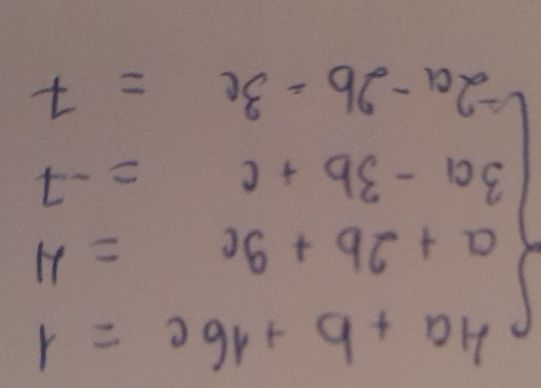 4a + b + 16c = 1
a + 2b + 9c = 4
3a - 3b + c = -7
-2a - 2b - 3c = 7